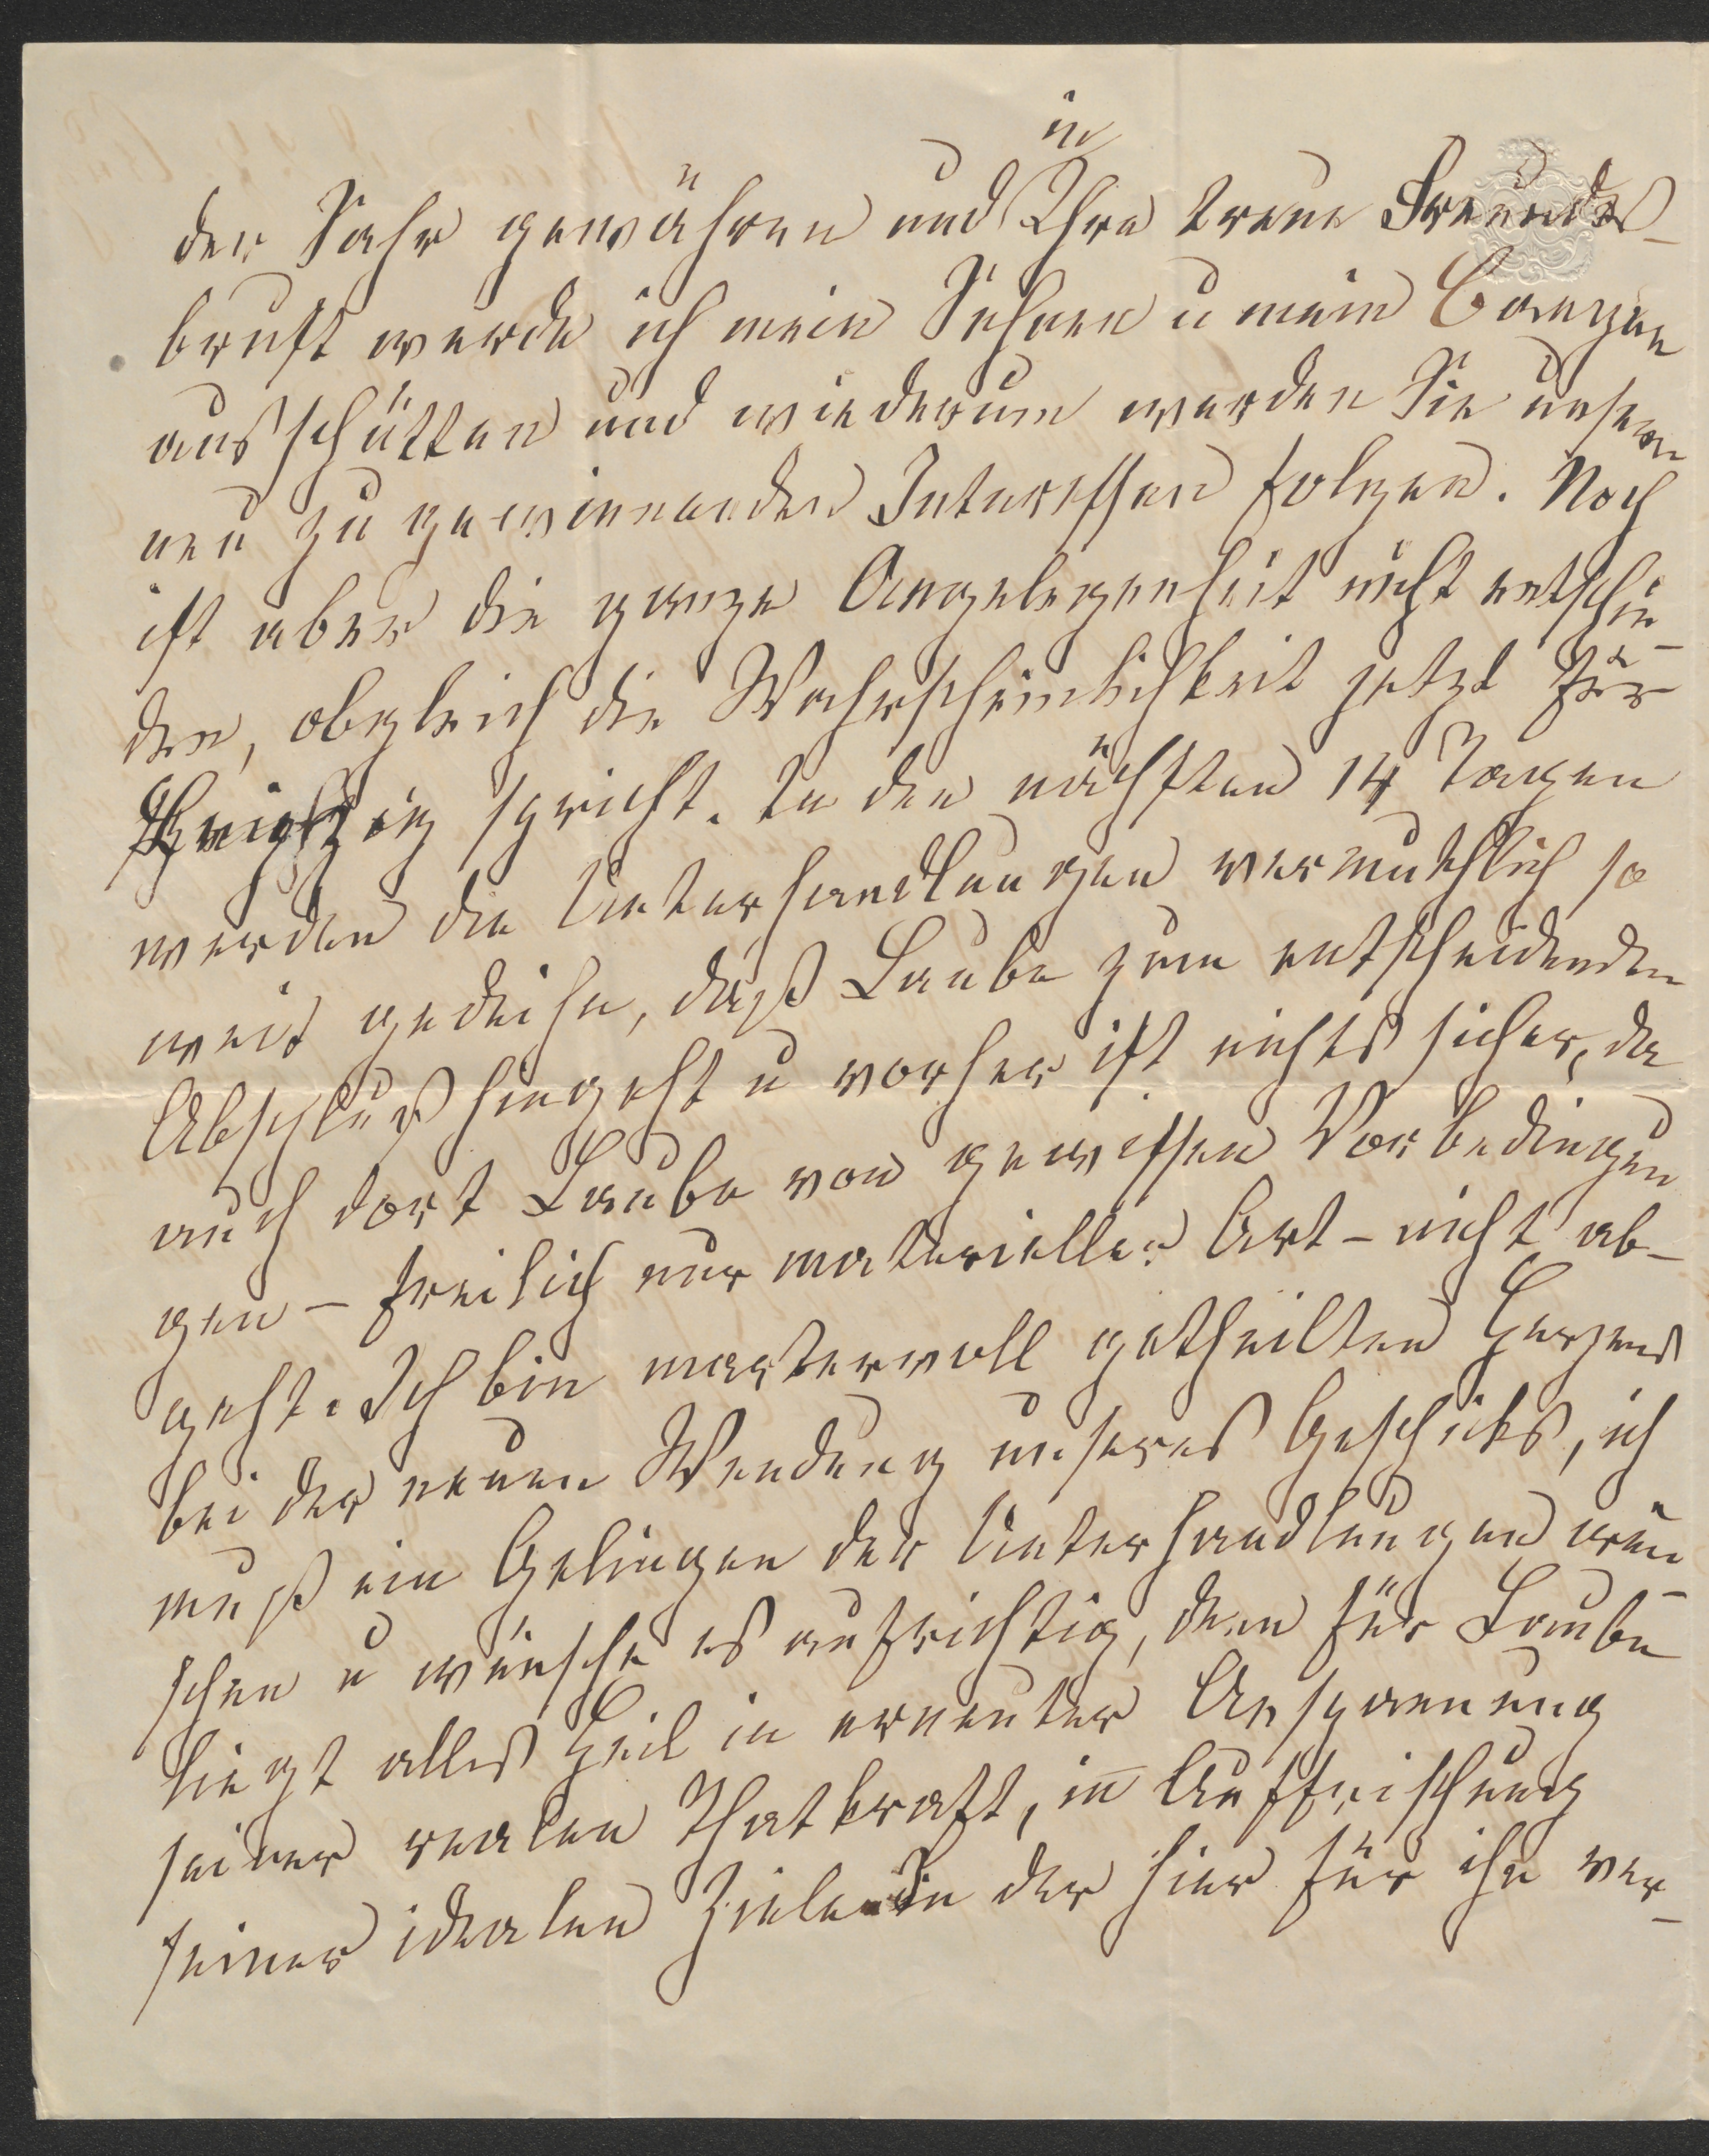 in
der Jahr gewähren und Ihre treue Freundes-
brust werde ich mein Sehnen u mein Bangen
ausschütten und wiederum werden Sie unsern
neu zu gewinnenden Interessen folgen. Noch
ist aber die ganze Angelegenheit nicht entschie-
den, obgleich die Wahrscheinlichkeit jetzt für
Leipzig spricht. In den nächsten 14 Tagen
werden die Unterhandlungen vermuthlich so
weit gedeihn, daß Laube zum entscheidenden
Abschluß hingeht u vorher ist nichts sicher, da
auch dort Laube von gewissen Vorbedingun
gen – freilich nur materieller Art – nicht ab-
geht. Ich bin martervoll getheilten Herzens
bei der neuen Wendung unseres Geschicks, ich
muß ein Gelingen der Unterhandlungen wün-
schen u wünsche es aufrichtig, denn für Laube
liegt alles Heil in erneuter Anspannung
seiner realen Thatkraft, in Auffrischung
seiner idealen Ziele. In der hier für ihn ver-